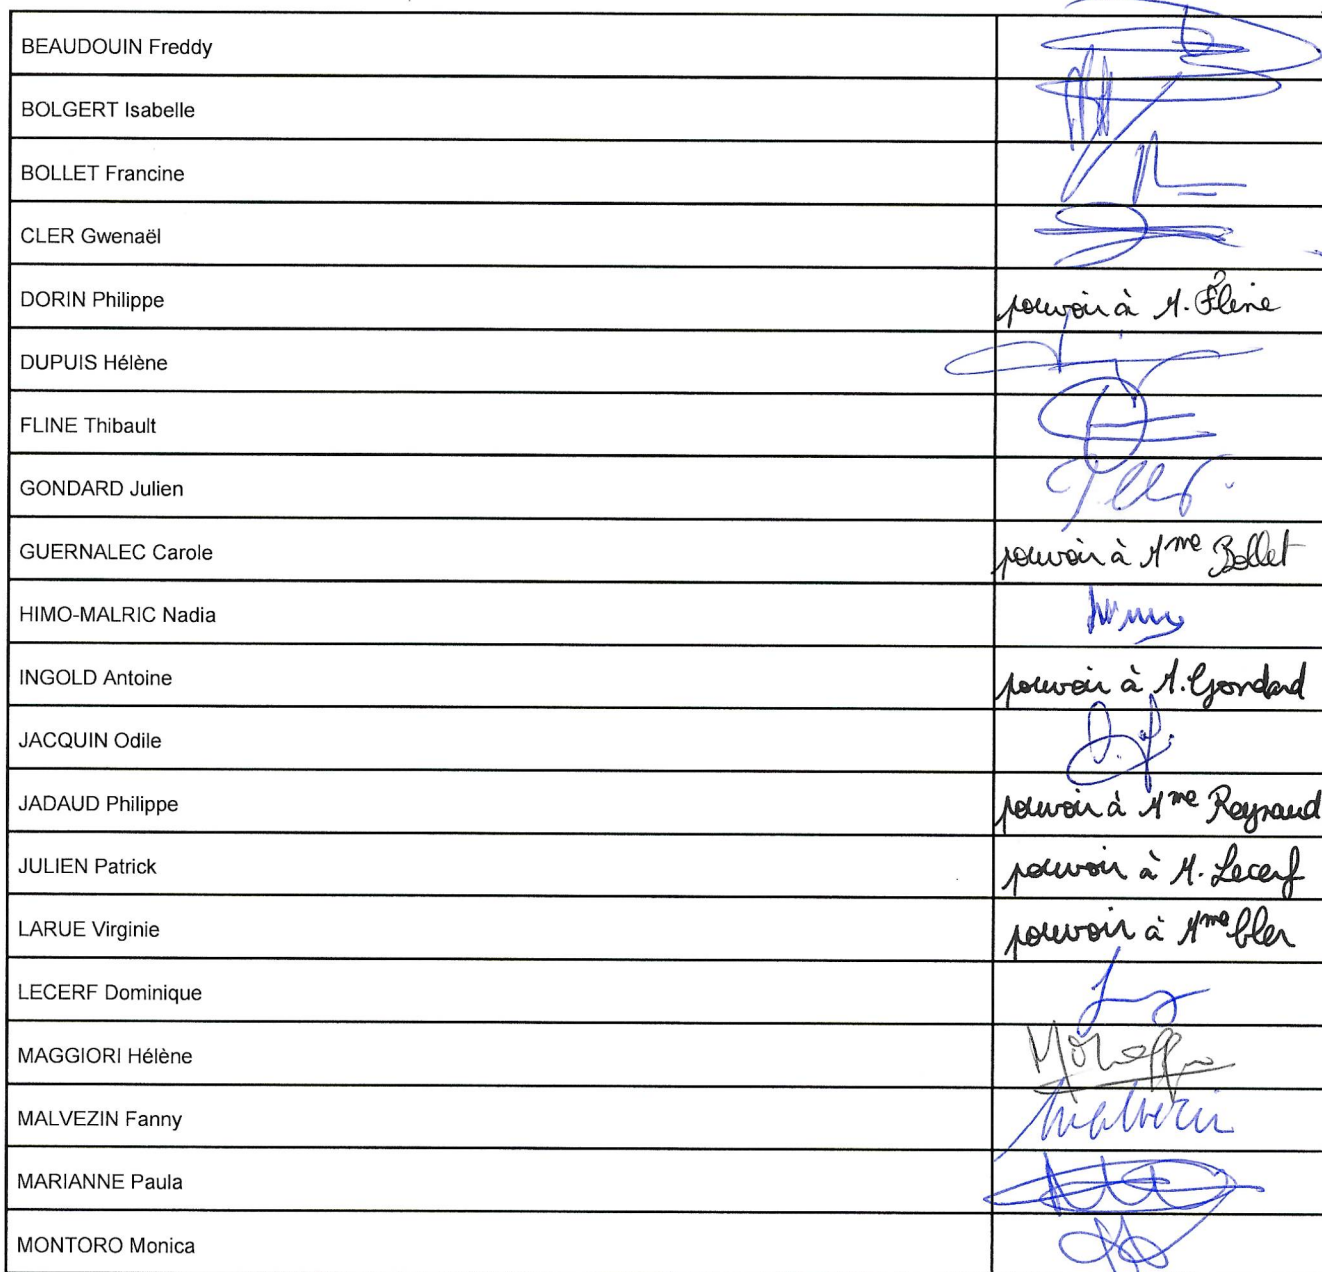 BEAUDOUIN Freddy
BOLGERT Isabelle
BOLLET Francine
CLER Gwenaël
DORIN Philippe pouvoir à M. Fline
DUPUIS Hélène
FLINE Thibault
GONDARD Julien
GUERNALEC Carole pouvoir à Mme Bollet
HIMO-MALRIC Nadia
INGOLD Antoine pouvoir à M. Gondard
JACQUIN Odile
JADAUD Philippe pouvoir à Mme Reynaud
JULIEN Patrick pouvoir à M. Lecerf
LARUE Virginie pouvoir à Mme Cler
LECERF Dominique
MAGGIORI Hélène
MALVEZIN Fanny Malvezin
MARIANNE Paula
MONTORO Monica